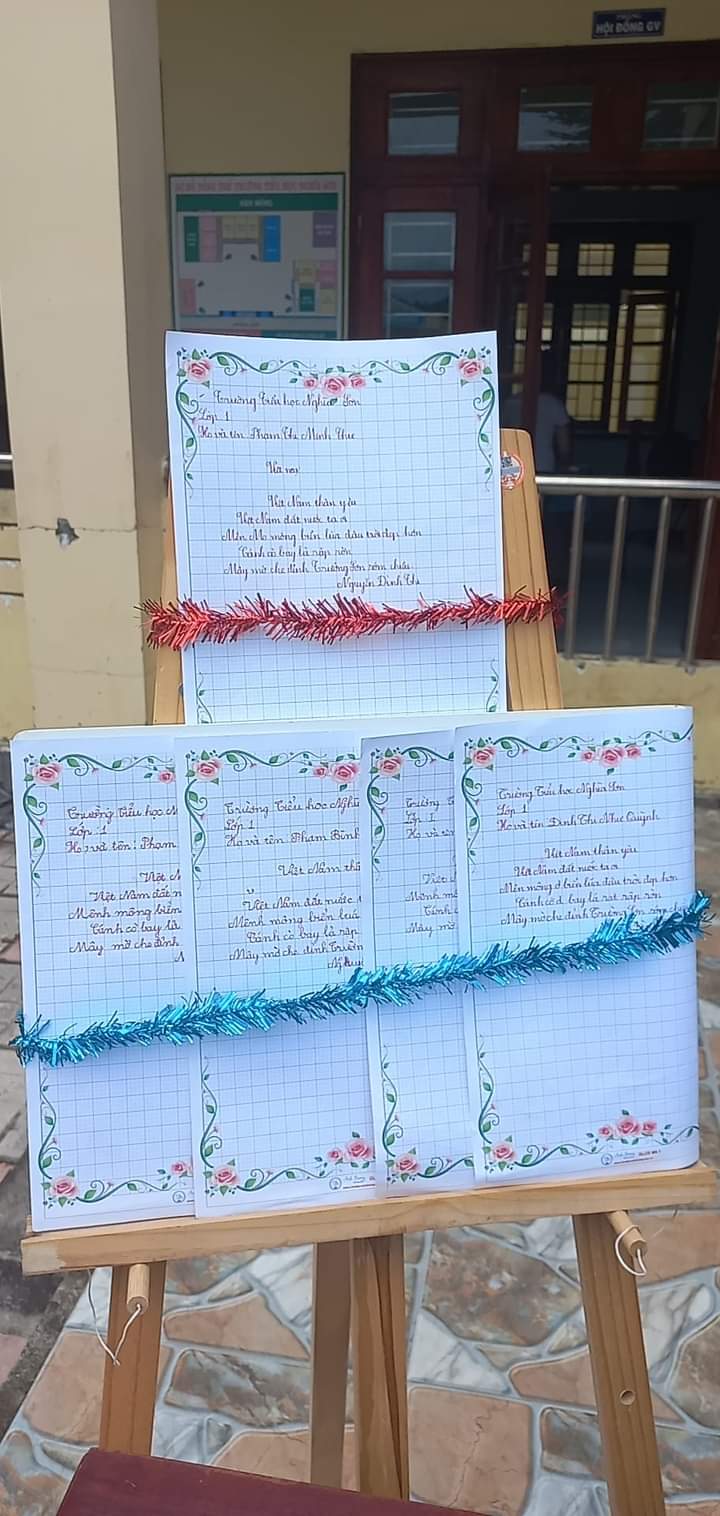 HỘI ĐỒNG GV
Trường Tiểu học Nghĩa Sơn
Lớp 1
Họ và tên Phạm Thị Minh Thư
Việt Nam thân yêu
Việt Nam đất nước ta ơi
Mên Mo mông biển lúa đâu trời đẹp hơn
Cánh cò bay lả rập rờn
Mây mờ che đỉnh Trường Sơn sớm chiều
Nguyễn Đình Thi
Trường Tiểu học
Lớp 1
Họ và tên: Phạm
Việt
Việt Nam đất
Mênh mông biển
Cánh cò bay lả
Mây mờ che đỉnh
Trường Tiểu học Nghĩ
Lớp 1
Họ và tên: Phạm Bình
Việt Nam thâ
Việt Nam đất nước
Mênh mông biển luá
Cánh cò bay lả rập
Mây mờ che đỉnh Trườn
Nguy
Trường
Lớp 1
Họ và tên
Việt
Mênh mô
Cánh
Mây mờ
Trường Tiểu học Nghĩa Sơn
Lớp 1
Họ và tên Đinh Thị Như Quỳnh
Việt Nam thân yêu
Việt Nam đất nước ta ơi
Mên mông ơ biển lúa đâu trời đẹp hơn
Cánh cò ơ bay lả rat rập rờn
Mây mờ che đỉnh Trường Sơn